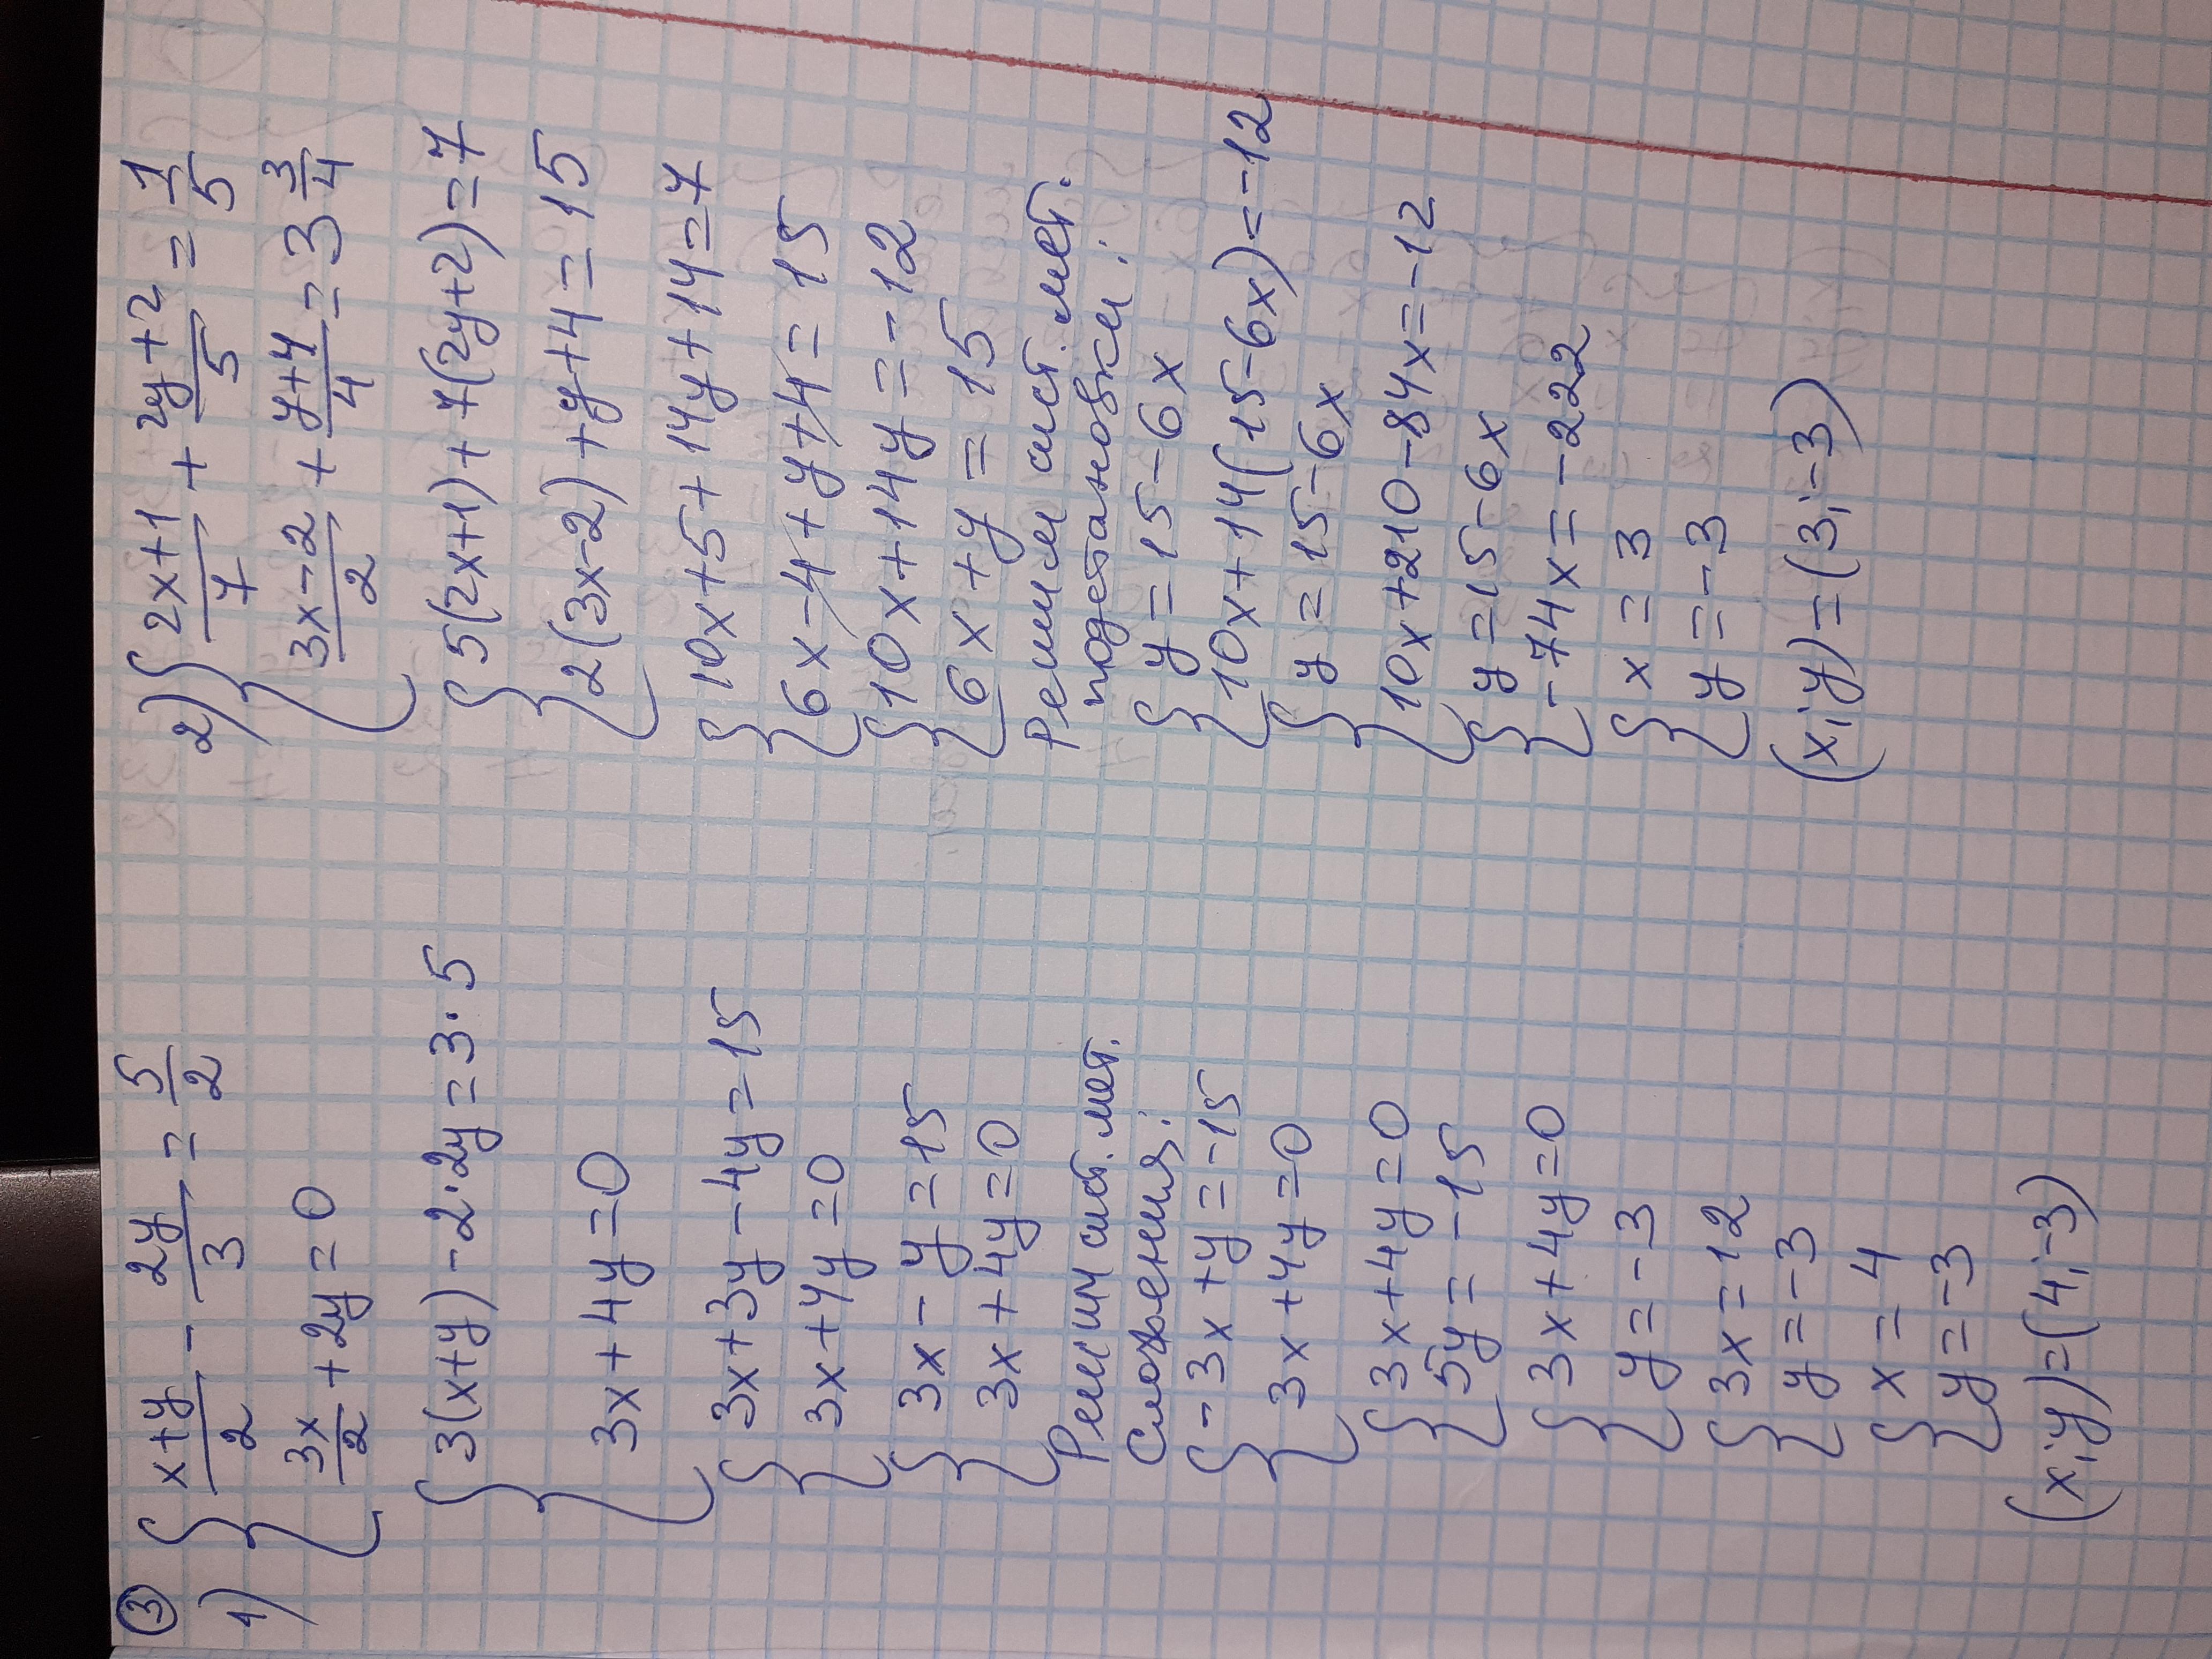 ③
1) { (x+y)/2 - 2y/3 = 5/2
3x/2 + 2y = 0
{ 3(x+y) - 2·2y = 3·5
3x + 4y = 0
{ 3x + 3y - 4y = 15
3x + 4y = 0
{ 3x - y = 15
3x + 4y = 0
Решим сист. мет.
сложения:
{ -3x + y = -15
3x + 4y = 0
{ 3x + 4y = 0
5y = -15
{ 3x + 4y = 0
y = -3
{ 3x = 12
y = -3
{ x = 4
y = -3
(x;y) = (4;-3)
2) { (2x+1)/7 + (2y+2)/5 = 1/5
(3x-2)/2 + (y+4)/4 = 3 3/4
{ 5(2x+1) + 7(2y+2) = 7
2(3x-2) + y + 4 = 15
{ 10x + 5 + 14y + 14 = 7
6x - 4 + y + 4 = 15
{ 10x + 14y = -12
6x + y = 15
Решим сист. мет.
подстановки:
{ y = 15 - 6x
10x + 14(15 - 6x) = -12
{ y = 15 - 6x
10x + 210 - 84x = -12
{ y = 15 - 6x
-74x = -222
{ x = 3
y = -3
(x;y) = (3;-3)